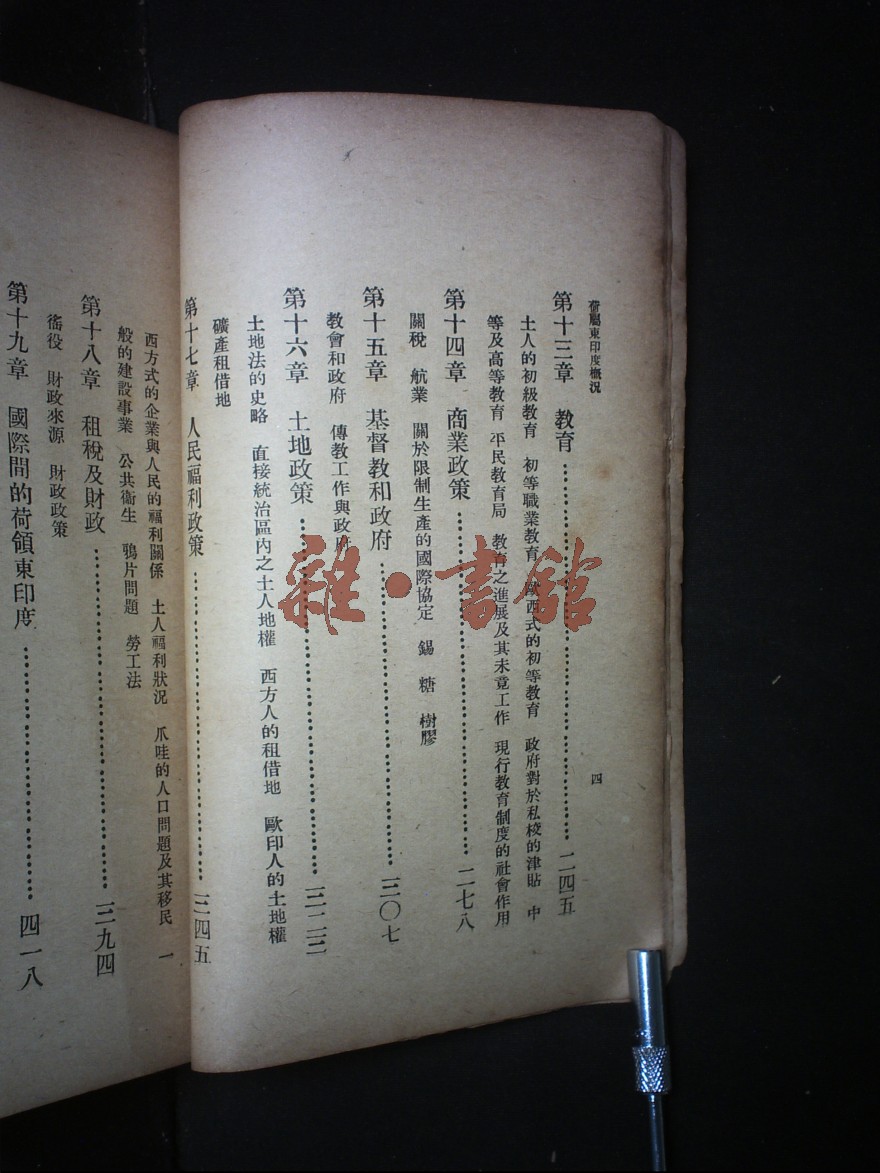 荷屬東印度概況
四
第十三章 教育……二四五
土人的初級教育 初等職業教育 歐西式的初等教育 政府對於私校的津貼 中
等及高等教育 平民教育局 教育之進展及其未竟工作 現行教育制度的社會作用
第十四章 商業政策……二七八
關稅 航業 關於限制生產的國際協定 錫 糖 樹膠
第十五章 基督教和政府……三〇七
教會和政府 傳教工作與政府
第十六章 土地政策……三二二
土地法的史略 直接統治區內之土人地權 西方人的租借地 歐印人的土地權
礦產租借地
第十七章 人民福利政策……三四五
西方式的企業與人民的福利關係 土人福利狀況 爪哇的人口問題及其移民 一
般的建設事業 公共衞生 鴉片問題 勞工法
第十八章 租稅及財政……三九四
徭役 財政來源 財政政策
第十九章 國際間的荷領東印度……四一八
雜·書館